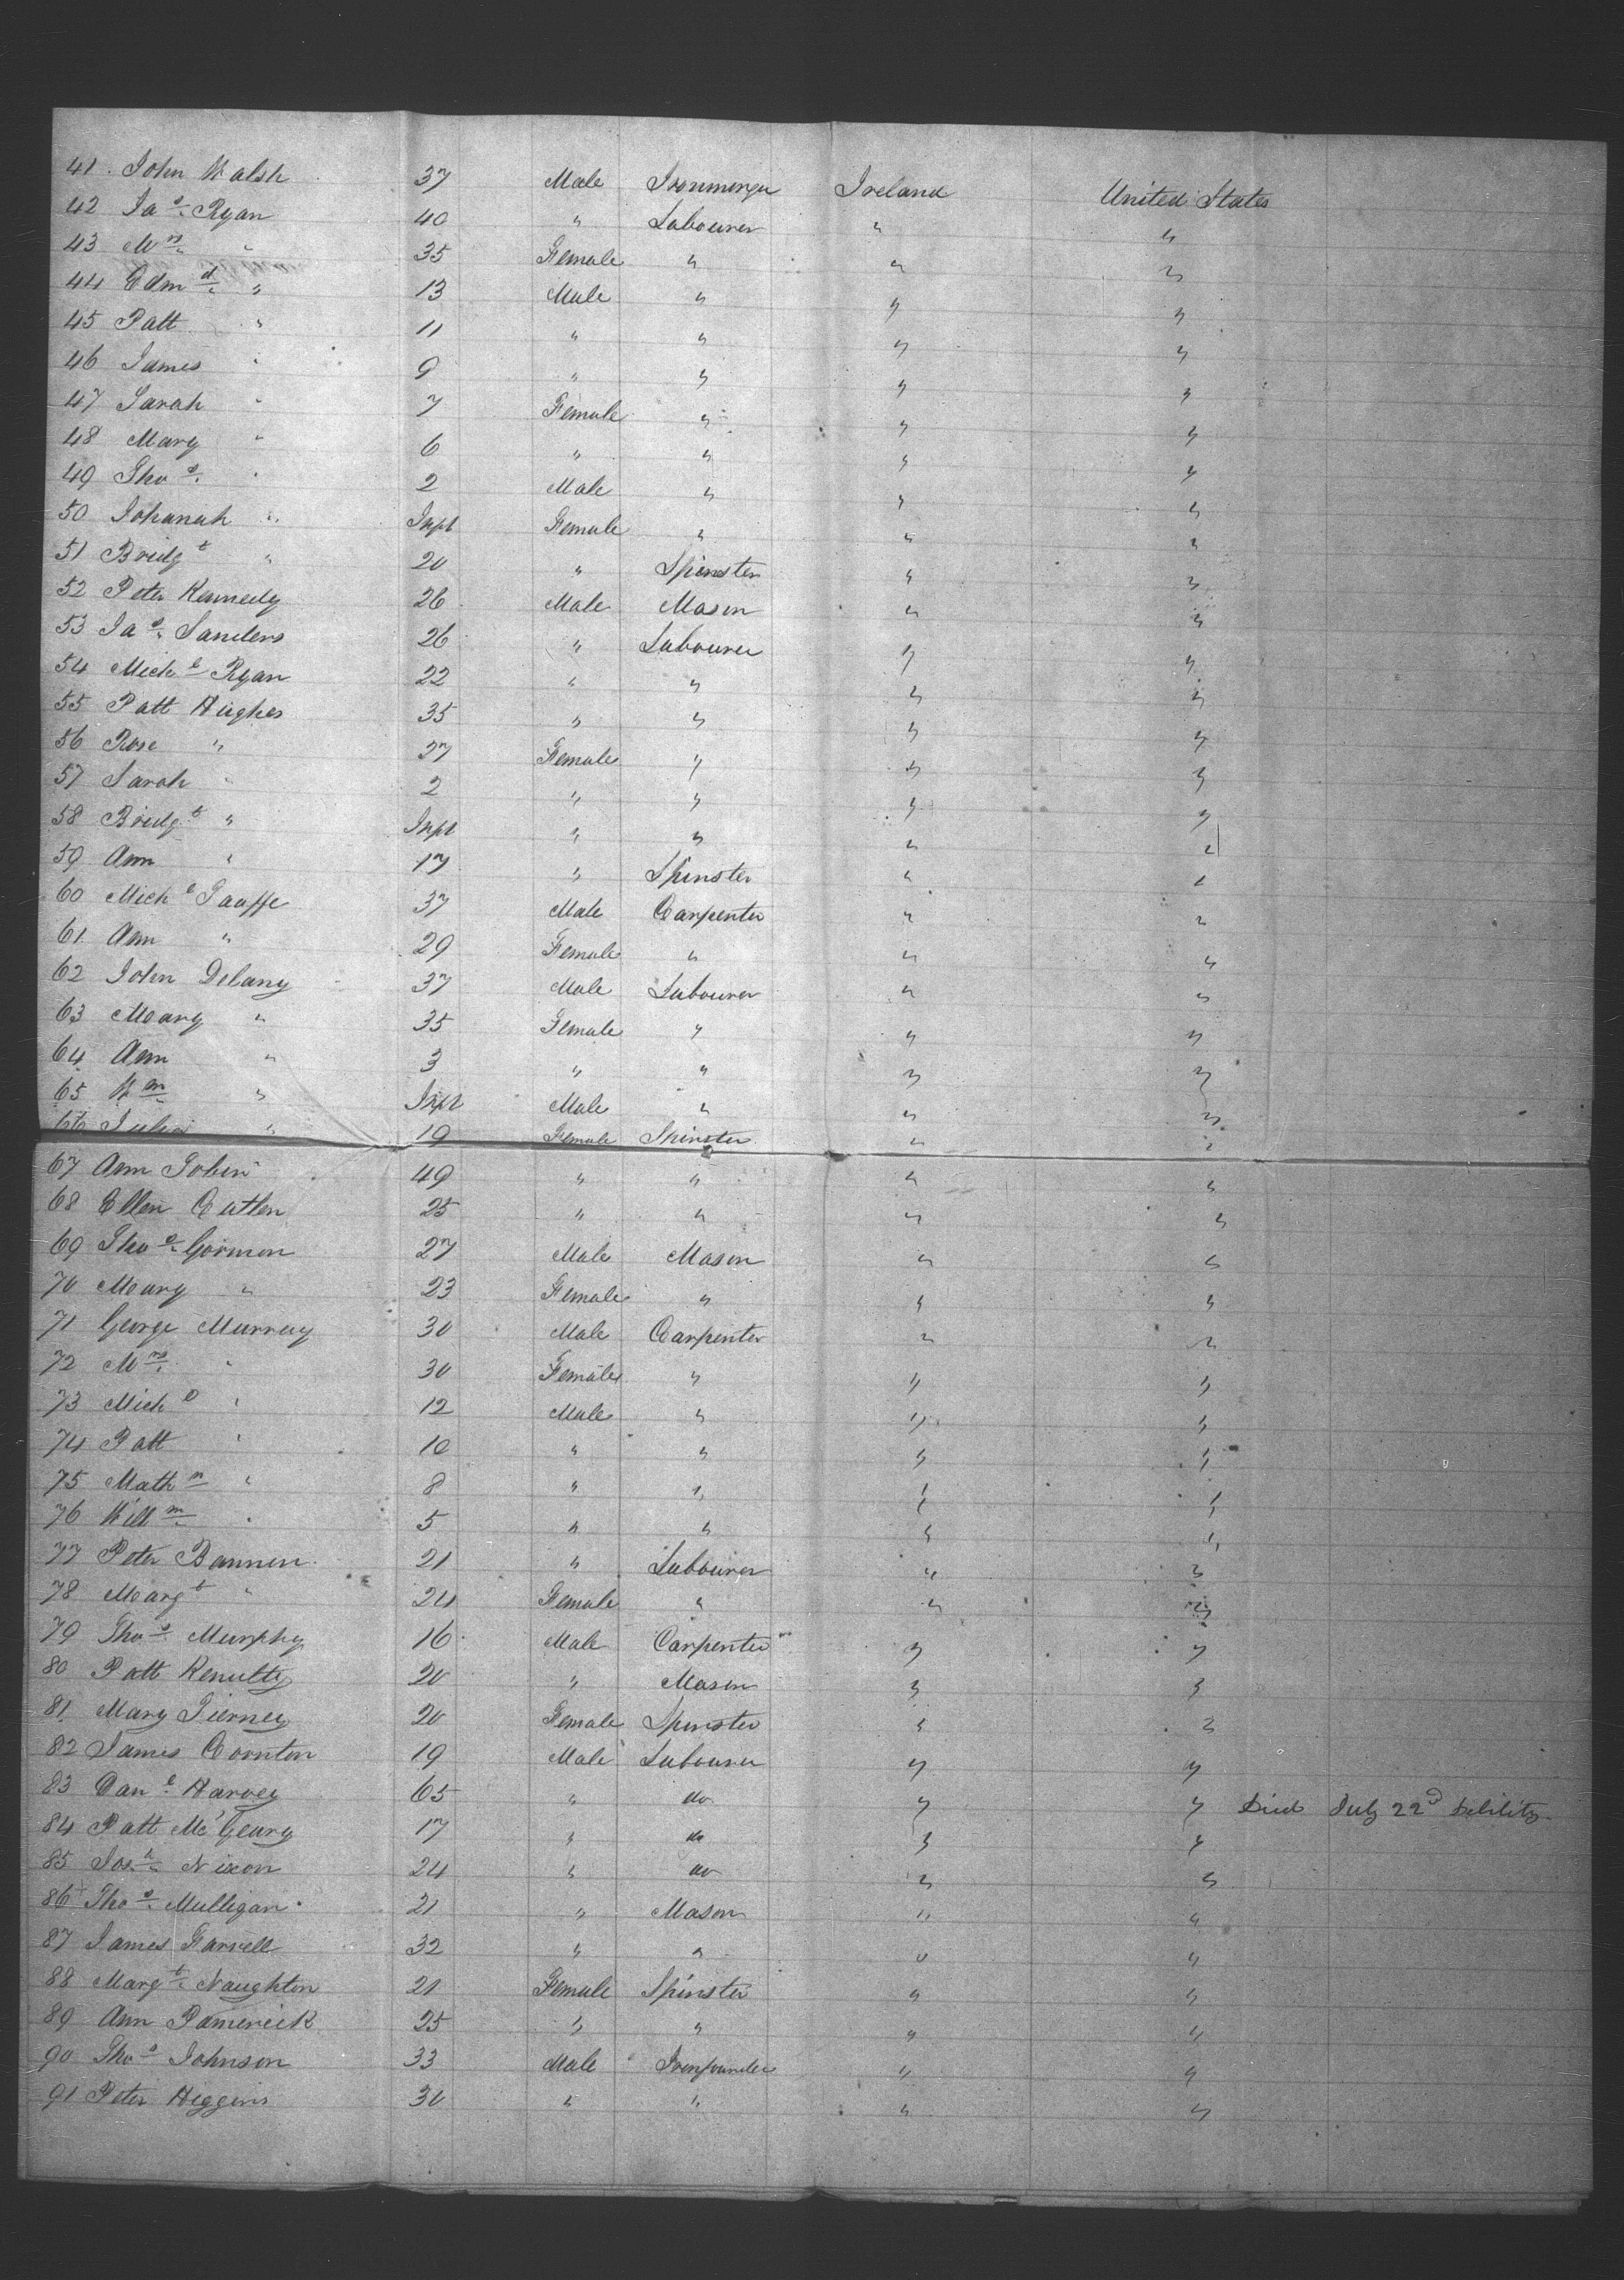 41 John Walsh 37 Male Ironmonger Ireland United States
42 Jas Ryan 40 " Labourer " "
43 Mrs " 35 Female " " "
44 Edmd " 13 Male " " "
45 Patt " 11 " " " "
46 James " 9 " " " "
47 Sarah " 7 Female " " "
48 Mary " 6 " " " "
49 Thos " 2 Male " " "
50 Johanah " Inft Female " " "
51 Bridgt " 20 " Spinster " "
52 Peter Kennedy 26 Male Mason " "
53 Jas Sanders 26 " Labourer " "
54 Michl Ryan 22 " " " "
55 Patt Hughes 35 " " " "
56 Rose " 27 Female " " "
57 Sarah " 2 " " " "
58 Bridgt " Inft " " " "
59 Ann " 17 " Spinster " "
60 Michl Taaffe 37 Male Carpenter " "
61 Ann " 29 Female " " "
62 John Delany 37 Male Labourer " "
63 Mary " 35 Female " " "
64 Ann " 3 " " " "
65 Wm " Inft Male " " "
66 Julia " 19 Female Spinster " "
67 Ann Tobin 49 " " " "
68 Ellen Catlen 25 " " " "
69 Thos Gormon 27 Male Mason " "
70 Mary " 23 Female " " "
71 George Murray 30 Male Carpenter " "
72 Mrs " 30 Female " " "
73 Michl " 12 Male " " "
74 Patt " 10 " " " "
75 Mathw " 8 " " " "
76 Willm " 5 " " " "
77 Peter Bannen 21 " Labourer " "
78 Margt " 24 Female " " "
79 Thos Murphy 16 Male Carpenter " "
80 Patt Kenulty 20 " Mason " "
81 Mary Tierney 20 Female Spinster " "
82 James Cornton 19 Male Labourer " "
83 Danl Harvey 65 " do " " Died July 22d Debility
84 Patt McGeary 17 " do " "
85 Josh Nixon 24 " do " "
86 Thos Mulligan 21 " Mason " "
87 James Farrell 32 " " " "
88 Margt Naughton 21 Female Spinster " "
89 Ann Pamerick 25 " " " "
90 Thos Johnson 33 Male Ironfounder " "
91 Peter Higgins 30 " " " "